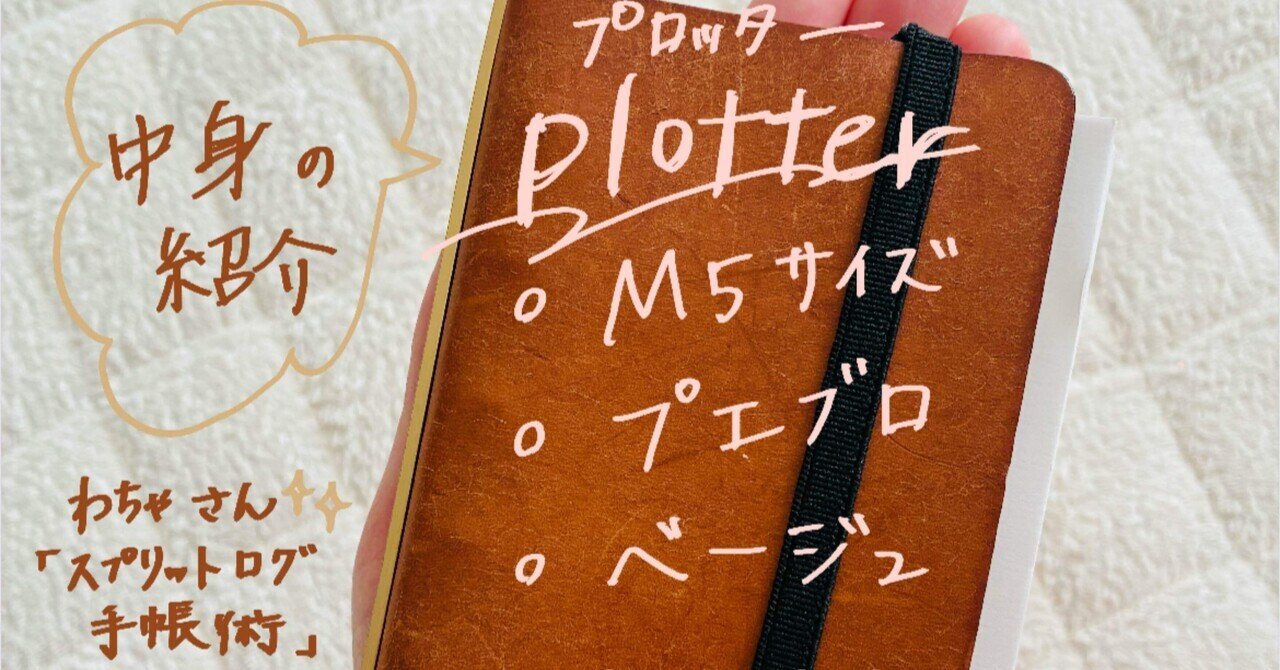 中身の
紹介
わちゃさん
「スプリットログ
手帳術」
プロッター
plotter
○ M5サイズ
○ プエブロ
○ ベージュ